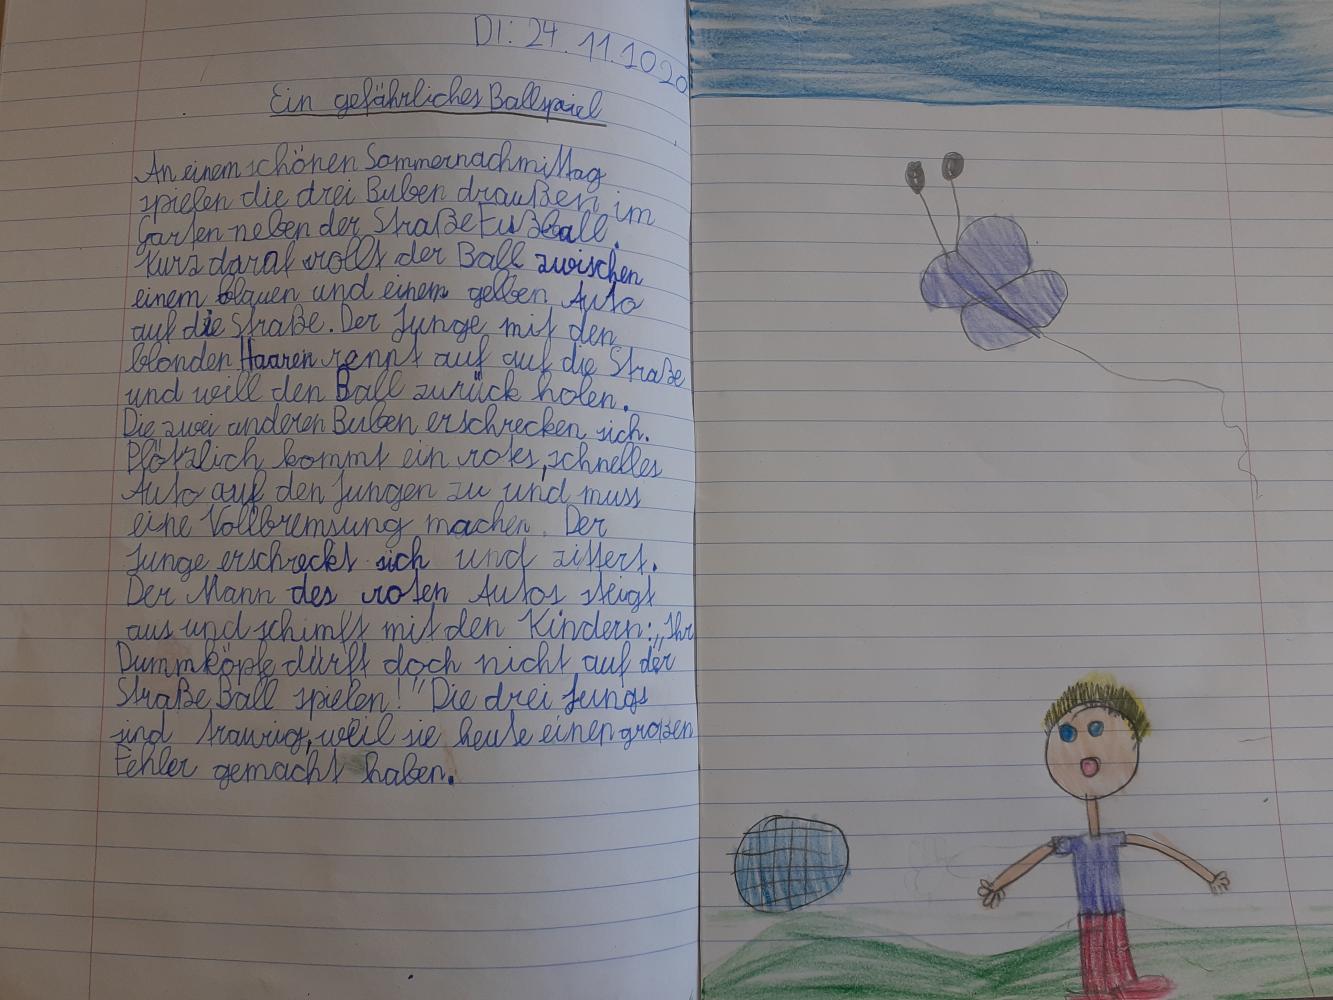 DI: 24.11.1020
Ein gefährliches Ballspiel
An einem schönen Sommernachmittag
spielen die drei Buben draußen im
Garten neben der Straße Fußball.
Kurz daraf rollt der Ball zwischen
einem blauen und einem gelben Auto
auf die Straße. Der Junge mit den
blonden Haaren rennt auf auf die Straße
und will den Ball zurück holen.
Die zwei anderen Buben erschrecken sich.
Plötzlich kommt ein rotes, schnelles
Auto auf den Jungen zu und muss
eine Vollbremsung machen. Der
Junge erschreckt sich und zittert.
Der Mann des roten Autos steigt
aus und schimft mit den Kindern: „Ihr
Dummköpfe dürft doch nicht auf der
Straße Ball spielen!" Die drei Jungs
sind traurig, weil sie heute einen großen
Fehler gemacht haben.